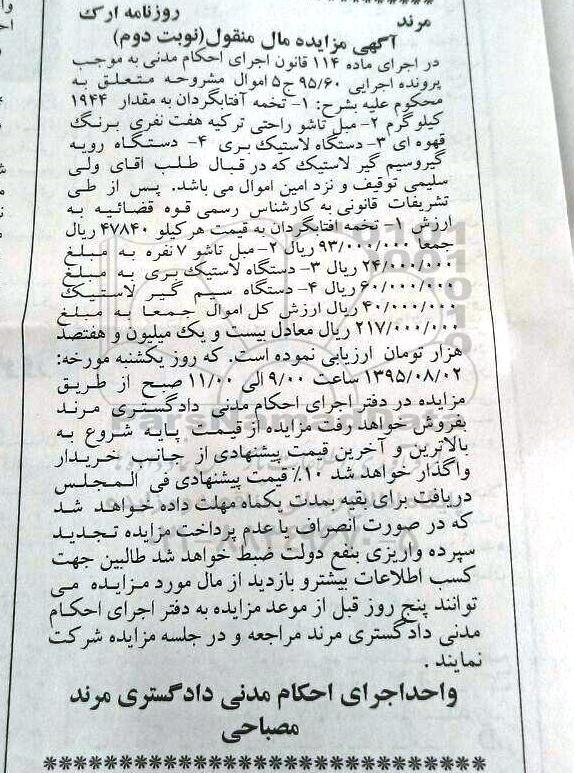 مرند روزنامه ارک
آگهی مزایده مال منقول(نوبت دوم)
در اجرای ماده ۱۱۴ قانون اجرای احکام مدنی به موجب
پرونده اجرایی ۹۵/۶۰ ج۵ اموال مشروحه متعلق به
محکوم علیه بشرح: ۱- تخمه آفتابگردان به مقدار ۱۹۴۴
کیلو گرم ۲- مبل تاشو راحتی ترکیه هفت نفری برنگ
قهوه ای ۳- دستگاه لاستیک بری ۴- دستگاه رویه
گیروسیم گیر لاستیک که در قبال طلب آقای ولی
سلیمی توقیف و نزد امین اموال می باشد. پس از طی
تشریفات قانونی به کارشناس رسمی قوه قضائیه به
ارزش ۱- تخمه افتابگردان به قیمت هرکیلو ۴۷۸۴۰ ریال
جمعا ۹۳/۰۰۰/۰۰۰ ریال ۲- مبل تاشو ۷ نفره به مبلغ
۲۴/۰۰۰/۰۰۰ ریال ۳- دستگاه لاستیک بری به مبلغ
۶۰/۰۰۰/۰۰۰ ریال ۴- دستگاه سیم گیر لاستیک
۴۰/۰۰۰/۰۰۰ ریال ارزش کل اموال جمعا به مبلغ
۲۱۷/۰۰۰/۰۰۰ ریال معادل بیست و یک میلیون و هفتصد
هزار تومان ارزیابی نموده است. که روز یکشنبه مورخه:
۱۳۹۵/۰۸/۰۲ ساعت ۹/۰۰ الی ۱۱/۰۰ صبح از طریق
مزایده در دفتر اجرای احکام مدنی دادگستری مرند
بفروش خواهد رفت مزایده از قیمت پایه شروع به
بالاترین و آخرین قیمت پیشنهادی از جانب خریدار
واگذار خواهد شد ۱۰٪ قیمت پیشنهادی فی المجلس
دریافت برای بقیه بمدت یکماه مهلت داده خواهد شد
که در صورت انصراف یا عدم پرداخت مزایده تجدید
سپرده واریزی بنفع دولت ضبط خواهد شد طالبین جهت
کسب اطلاعات بیشترو بازدید از مال مورد مزایده می
توانند پنج روز قبل از موعد مزایده به دفتر اجرای احکام
مدنی دادگستری مرند مراجعه و در جلسه مزایده شرکت
نمایند .
واحداجرای احکام مدنی دادگستری مرند
مصباحی